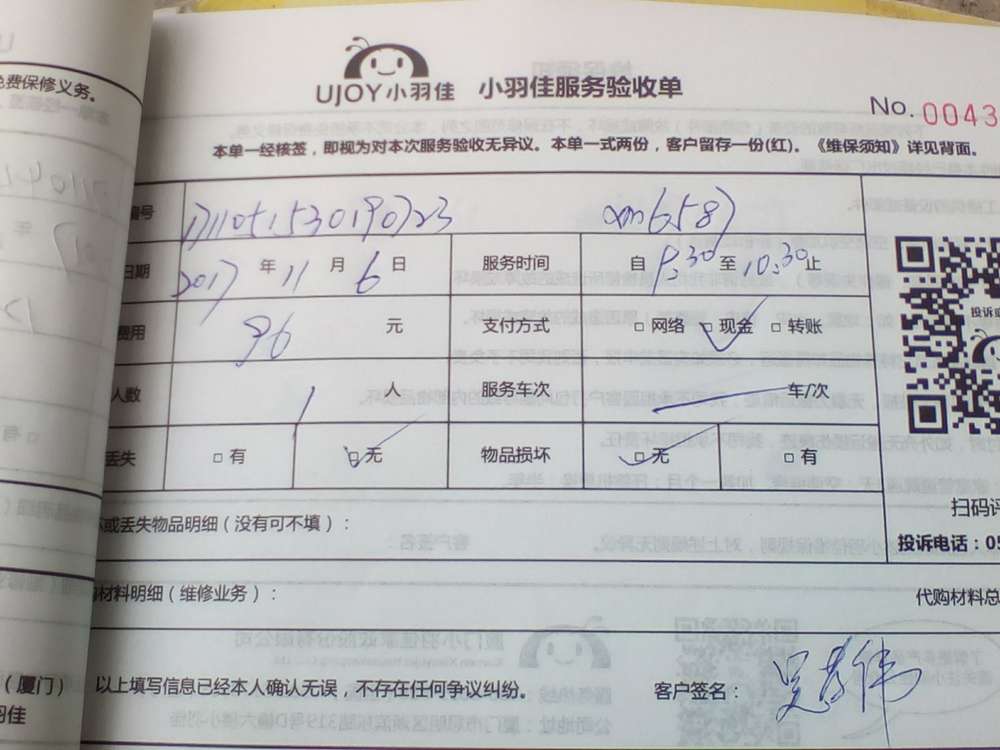 免费保修义务。
UJOY小羽佳 小羽佳服务验收单
No. 0043
本单一经核签，即视为对本次服务验收无异议。本单一式两份，客户留存一份(红)。《维保须知》详见背面。
编号 1711051530190723 xm6587
日期 2017 年 11 月 6 日 服务时间 自 9:30 至 10:30 止
费用 96 元 支付方式 □网络 □现金 □转账
人数 1 人 服务车次 车/次
丢失 □有 □无 物品损坏 □无 □有
扫码评
坏或丢失物品明细（没有可不填）：
投诉电话：05
购材料明细（维修业务）：
代购材料总
（厦门）
羽佳
以上填写信息已经本人确认无误，不存在任何争议纠纷。
客户签名：